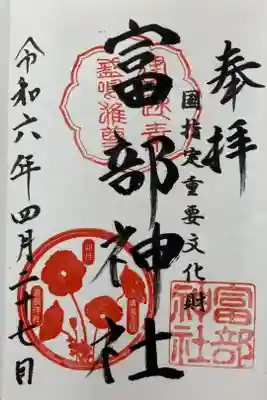 奉拝
国指定重要文化財
富部神社
令和六年四月二十七日
富部
神社